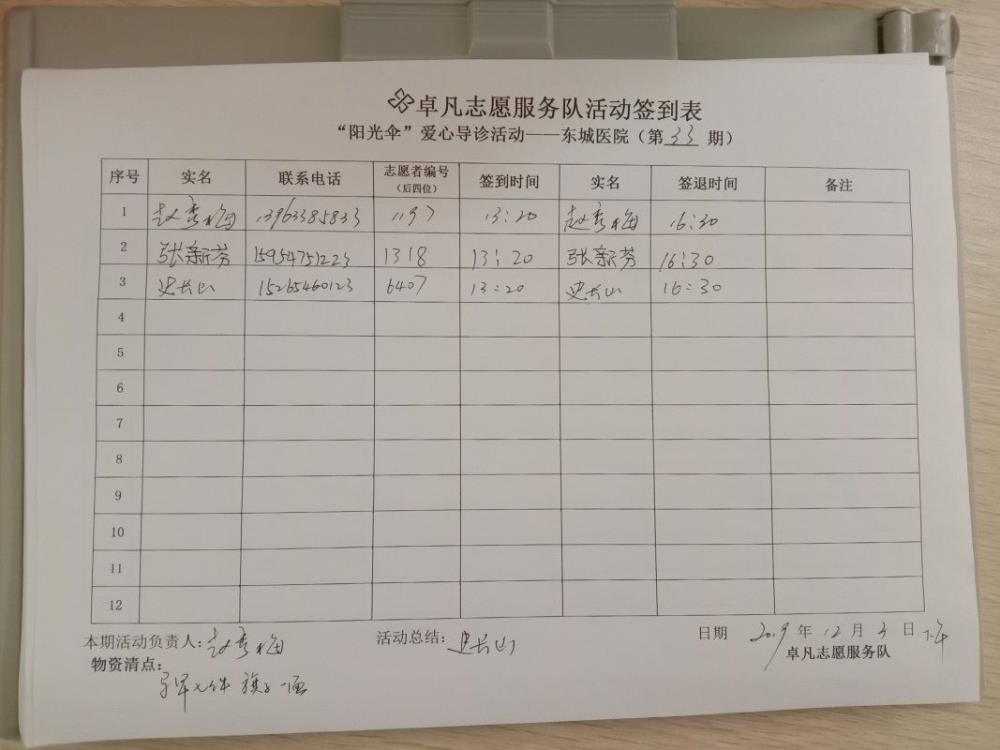 卓凡志愿服务队活动签到表
“阳光伞”爱心导诊活动——东城医院（第33期）
序号 实名 联系电话 志愿者编号（后四位） 签到时间 实名 签退时间 备注
1 赵秀梅 13963385833 1197 13:20 赵秀梅 16:30
2 张新芳 15954751223 1318 13:20 张新芳 16:30
3 史长山 15265460123 6407 13:20 史长山 16:30
4
5
6
7
8
9
10
11
12
本期活动负责人：赵秀梅 活动总结：史长山 日期 2019年12月3日下午
物资清点： 卓凡志愿服务队
七件 旗子一面